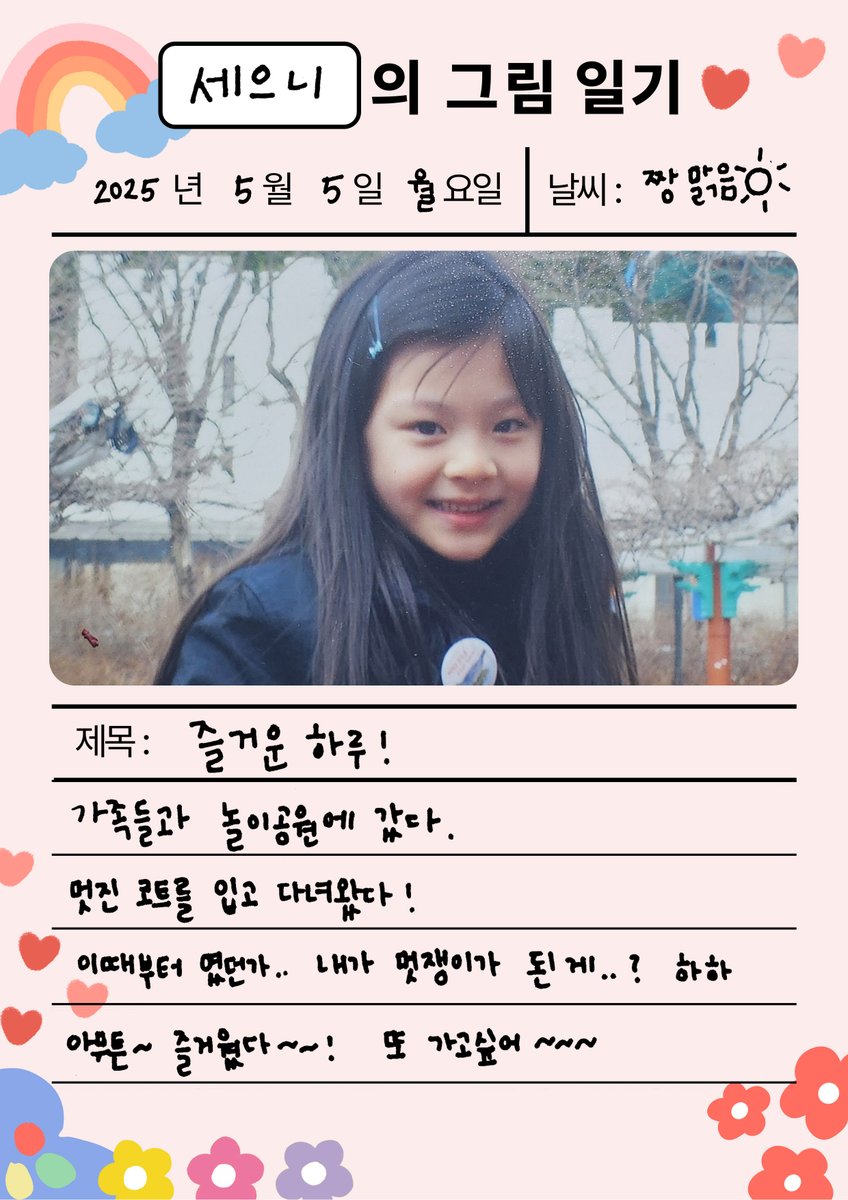 세으니의 그림 일기
2025년 5월 5일 월요일 날씨: 짱 맑음
제목: 즐거운 하루!
가족들과 놀이공원에 갔다.
멋진 코트를 입고 다녀왔다!
이때부터 였던가.. 내가 멋쟁이가 된게..? 하하
아무튼~ 즐거웠다~~! 또 가고싶어~~~